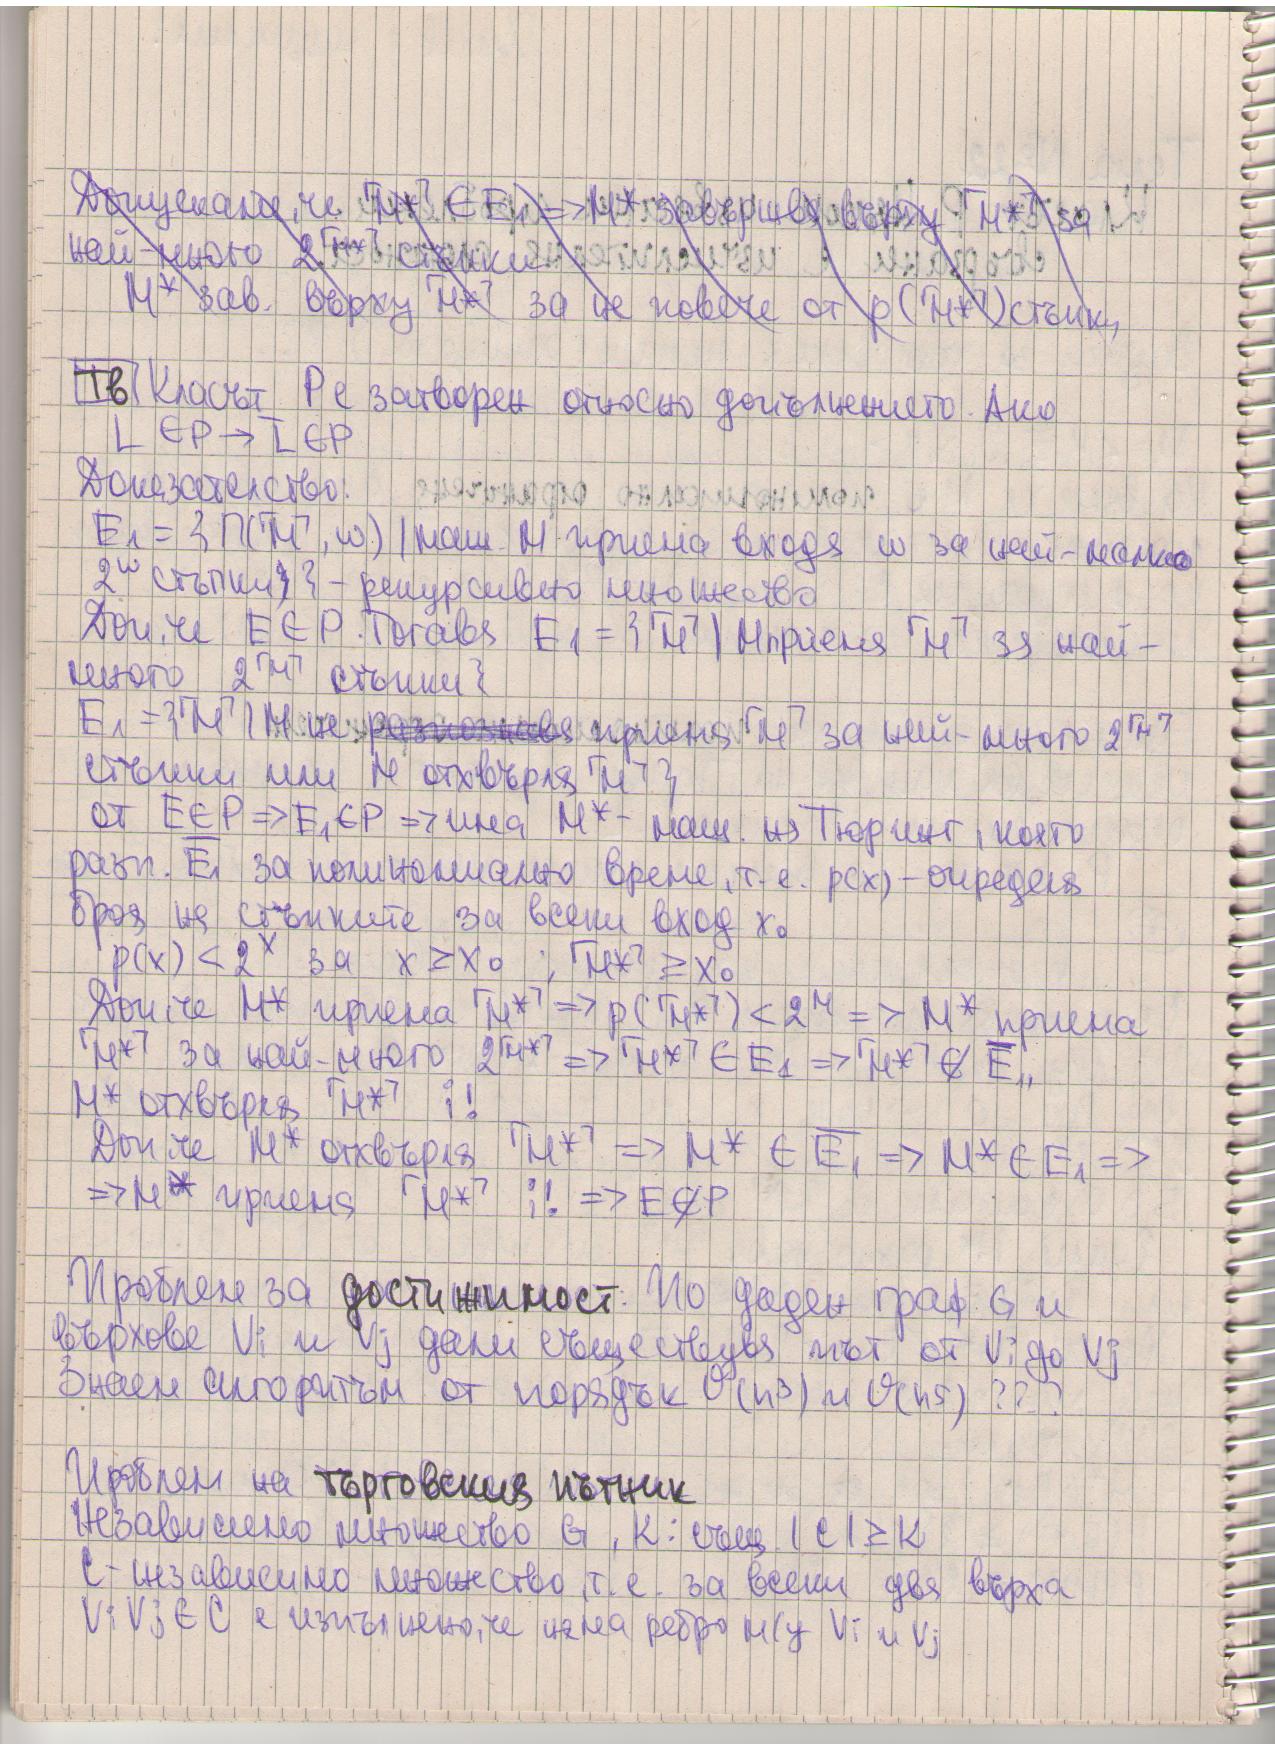 Допускаме, че ⌈M*⌉ ∈ E₁ => M* завършва върху ⌈M*⌉ за
най-много 2^⌈M*⌉ стъпки
M* зав. върху ⌈M*⌉ за не повече от p(⌈M*⌉) стъпки
Тв Класът P е затворен относно допълнението. Ако
L ∈ P → L̅ ∈ P
Доказателство:
E₁ = {Π(⌈M⌉, w) | маш. M приема входа w за най-малко
2^w стъпки} } - рекурсивно множество
Доп. че E ∈ P. Тогава E₁ = {⌈M⌉ | M приема ⌈M⌉ за най-
много 2^⌈M⌉ стъпки}
E₁ = {⌈M⌉ | M не разпознава приема ⌈M⌉ за най-много 2^⌈M⌉
стъпки или M отхвърля ⌈M⌉}
от E ∈ P => E₁ ∈ P => има M* - маш. на Тюринг, която
разп. E̅₁ за полиномиално време, т.е. p(x) - определя
броя на стъпките за всеки вход x₀
p(x) < 2^x за x ≥ x₀ ; ⌈M*⌉ ≥ x₀
Доп. че M* приема ⌈M*⌉ => p(⌈M*⌉) < 2^M => M* приема
⌈M*⌉ за най-много 2^⌈M*⌉ => ⌈M*⌉ ∈ E₁ => ⌈M*⌉ ∉ E̅₁,
M* отхвърля ⌈M*⌉ ¡!
Доп. че M* отхвърля ⌈M*⌉ => M* ∈ E̅₁ => M* ∈ E₁ =>
=> M* приема ⌈M*⌉ ¡! => E ∉ P
Проблем за достижимост. По даден граф G и
върхове Vi и Vj дали съществува път от Vi до Vj
Знаем алгоритъм от порядък O(n³) и O(n5) ???
Проблем на търговския пътник
Независимо множество G, K : същ. |C| ≥ K
C - независимо множество, т.е. за всеки два върха
Vi Vj ∈ C е изпълнено, че няма ребро м/у Vi и Vj